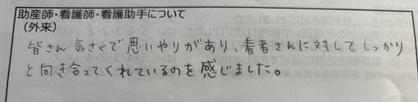 助産師・看護師・看護助手について
(外来)
皆さん気さくで思いやりがあり、看者さんに対してしっかり
と向き合ってくれているのを感じました。